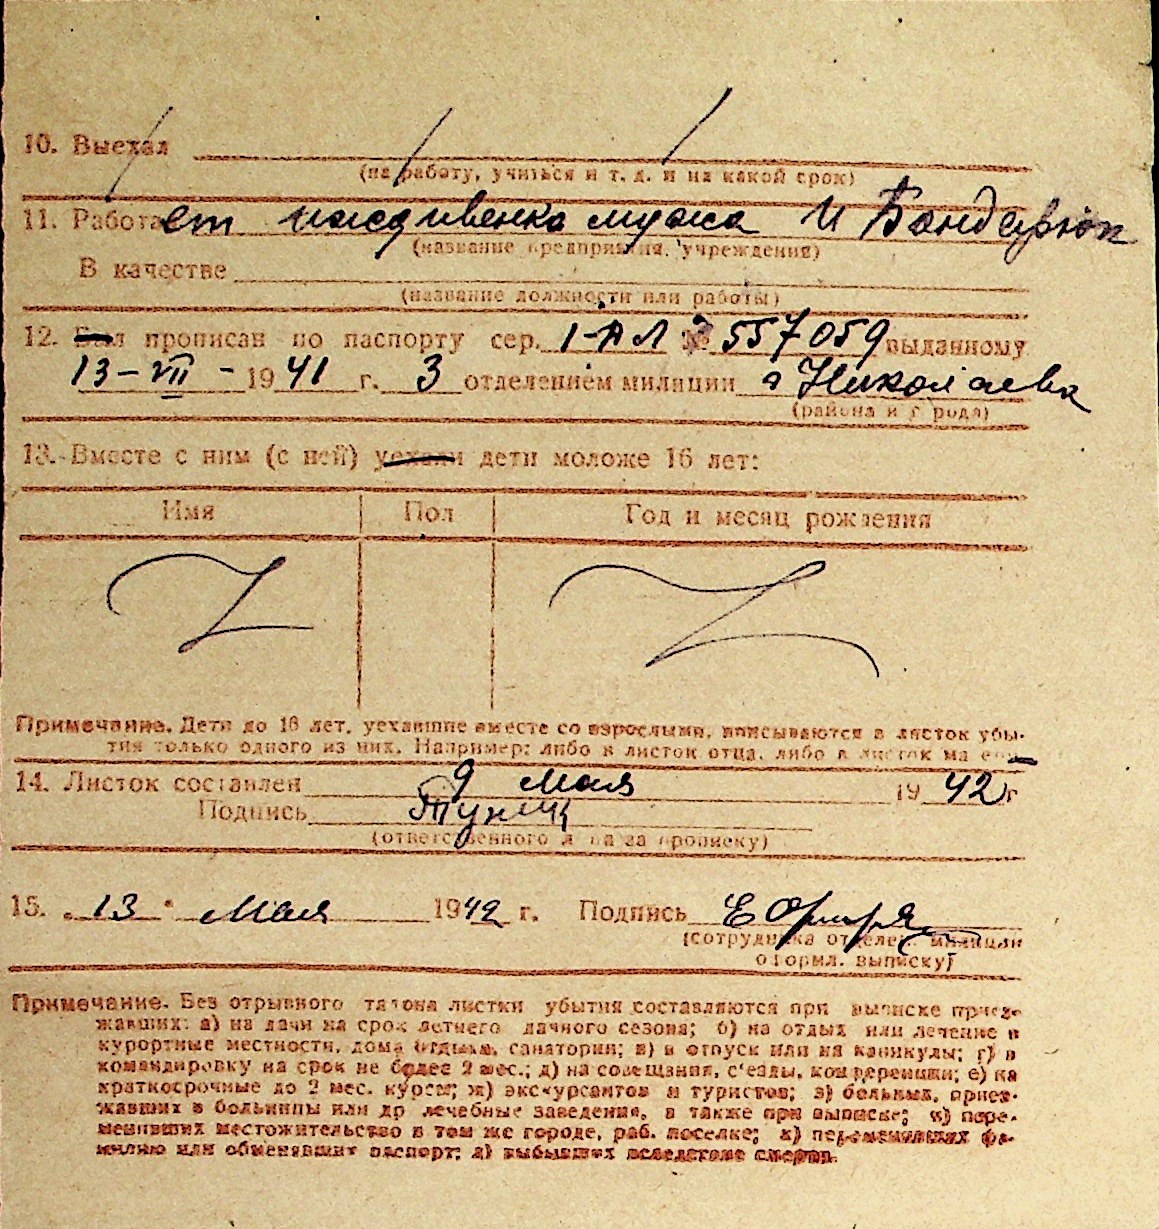 10. Выехал
(на работу, учиться и т. д. и на какой срок)
11. Работает иждивенка мужа И
(название предприятия, учреждения)
В качестве
(название должности или работы)
12. Был прописан по паспорту сер. I-АЛ № 557059 выданному
13-VII-1941 г. 3 отделением милиции г Николаева
(района и города)
13. Вместе с ним (с ней) уехали дети моложе 16 лет:
Имя Пол Год и месяц рождения
Примечание. Дети до 16 лет, уехавшие вместе со взрослыми, вписываются в листок убы-
тия только одного из них. Например: либо в листок отца, либо в листок матери
14. Листок составлен 9 мая 1942 г
Подпись
(ответственного лица за прописку)
15. „13" мая 1942 г. Подпись
(сотрудника отделен. милиции
оформл. выписку)
Примечание. Без отрывного талона листки убытия составляются при выписке приез-
жавших: а) на дачи на срок летнего дачного сезона; б) на отдых или лечение в
курортные местности, дома отдыха, санатории; в) в отпуск или на каникулы; г) в
командировку на срок не более 2 мес.; д) на совещания, с'езды, конференции; е) на
краткосрочные до 2 мес. курсы; ж) экскурсантов и туристов; з) больных, приез-
жавших в больницы или др лечебные заведения, а также при выписке; и) пере-
менивших местожительство в том же городе, раб. поселке; к) переменивших фа-
милию или обменявших паспорт; л) выбывших вследствие смерти.